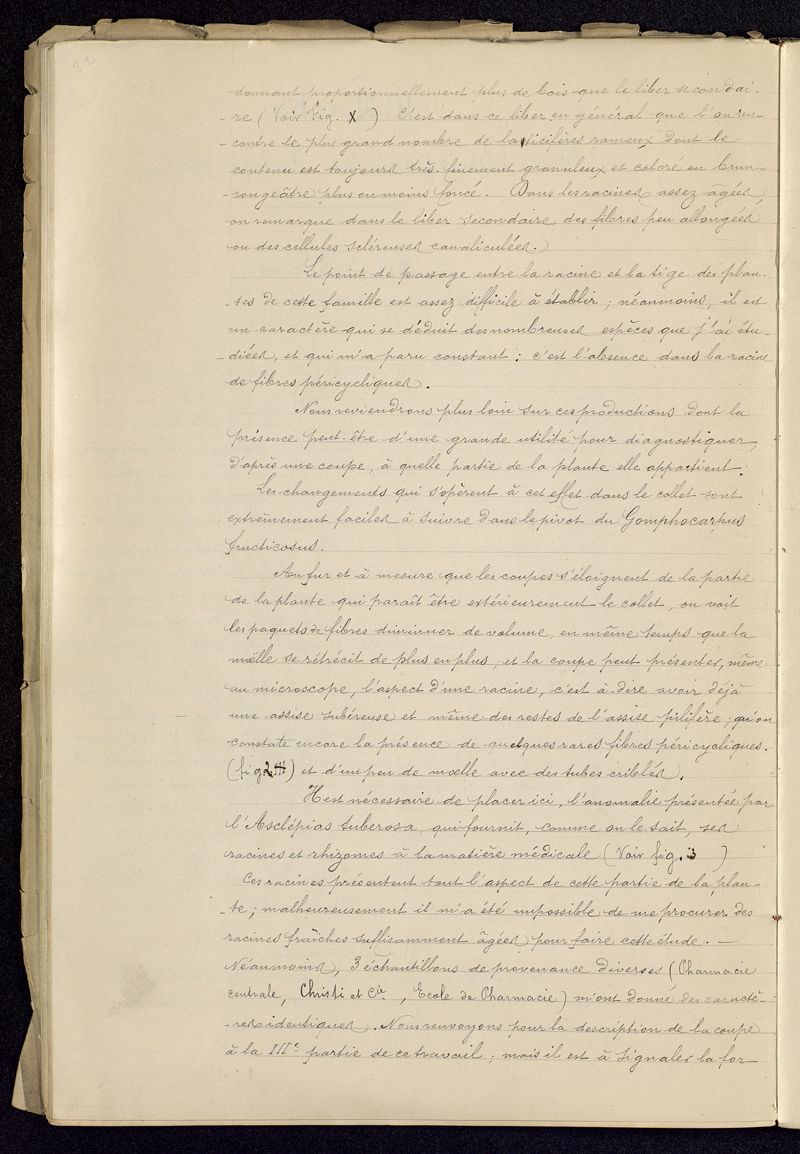 22
donnant proportionnellement plus de bois que le liber secondai-
-re (Voir Fig. X ) C'est dans ce liber en général que l'on ren-
-contre le plus grand nombre de laticifères rameux dont le
contenu est toujours très finement granuleux et coloré en brun-
-rougeâtre plus ou moins foncé. Dans les racines assez âgées,
on remarque dans le liber secondaire des fibres peu allongées
ou des cellules scléreuses canaliculées.
Le point de passage entre la racine et la tige des plan-
-tes de cette famille est assez difficile à établir ; néanmoins, il est
un caractère qui se déduit des nombreuses espèces que j'ai étu-
-diées, et qui m'a paru constant : c'est l'absence dans la racine
de fibres péricycliques.
Nous reviendrons plus loin sur ces productions dont la
présence peut-être d'une grande utilité pour diagnostiquer,
d'après une coupe, à quelle partie de la plante elle appartient.
Les changements qui s'opèrent à cet effet dans le collet sont
extrêmement faciles à suivre dans le pivot du Gomphocarpus
fructicosus.
Au fur et à mesure que les coupes s'éloignent de la partie
de la plante qui paraît être extérieurement le collet, on voit
les paquets de fibres diminuer de volume, en même temps que la
mœlle se rétrécit de plus en plus ; et la coupe peut présenter, même
au microscope, l'aspect d'une racine, c'est à-dire avoir déjà
une assise subéreuse et même des restes de l'assise pilifère ; qu'on
constate encore la présence de quelques rares fibres péricycliques.
(fig 2 ) et d'un peu de moelle avec des tubes criblés.
Il est nécessaire de placer ici, l'anomalie présentée par
l'Asclépias tuberosa, qui fournit, comme on le sait, ses
racines et rhizomes à la matière médicale (Voir fig. 3 )
Ces racines présentent tout l'aspect de cette partie de la plan-
-te ; malheureusement il m'a été impossible de me procurer des
racines fraîches suffisamment âgées pour faire cette étude. —
Néanmoins, 3 échantillons de provenance diverses (Pharmacie
centrale, Christi et Cie, Ecole de Pharmacie) m'ont donné des caractè-
-res identiques. Nous renvoyons pour la description de la coupe
à la IIIe partie de ce travail ; mais il est à signaler la for-